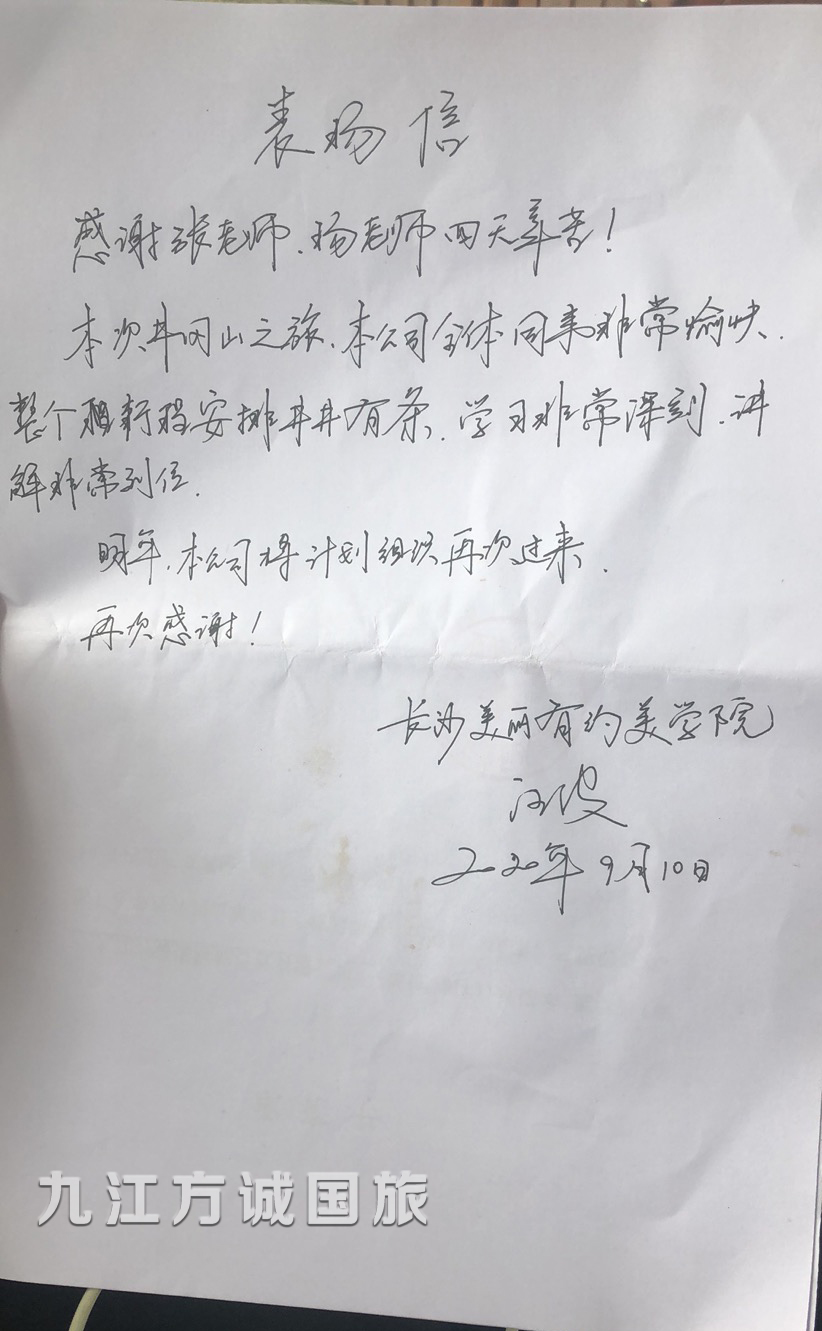 表扬信
感谢张老师、杨老师四天辛苦！
本次井冈山之旅、本公司全体同事非常愉快、
整个行程安排井井有条、学习非常深刻、讲
解非常到位.
明年、本公司将计划组织再次过来、
再次感谢！
长沙美丽有约美学院
2020年9月10日
九江方诚国旅